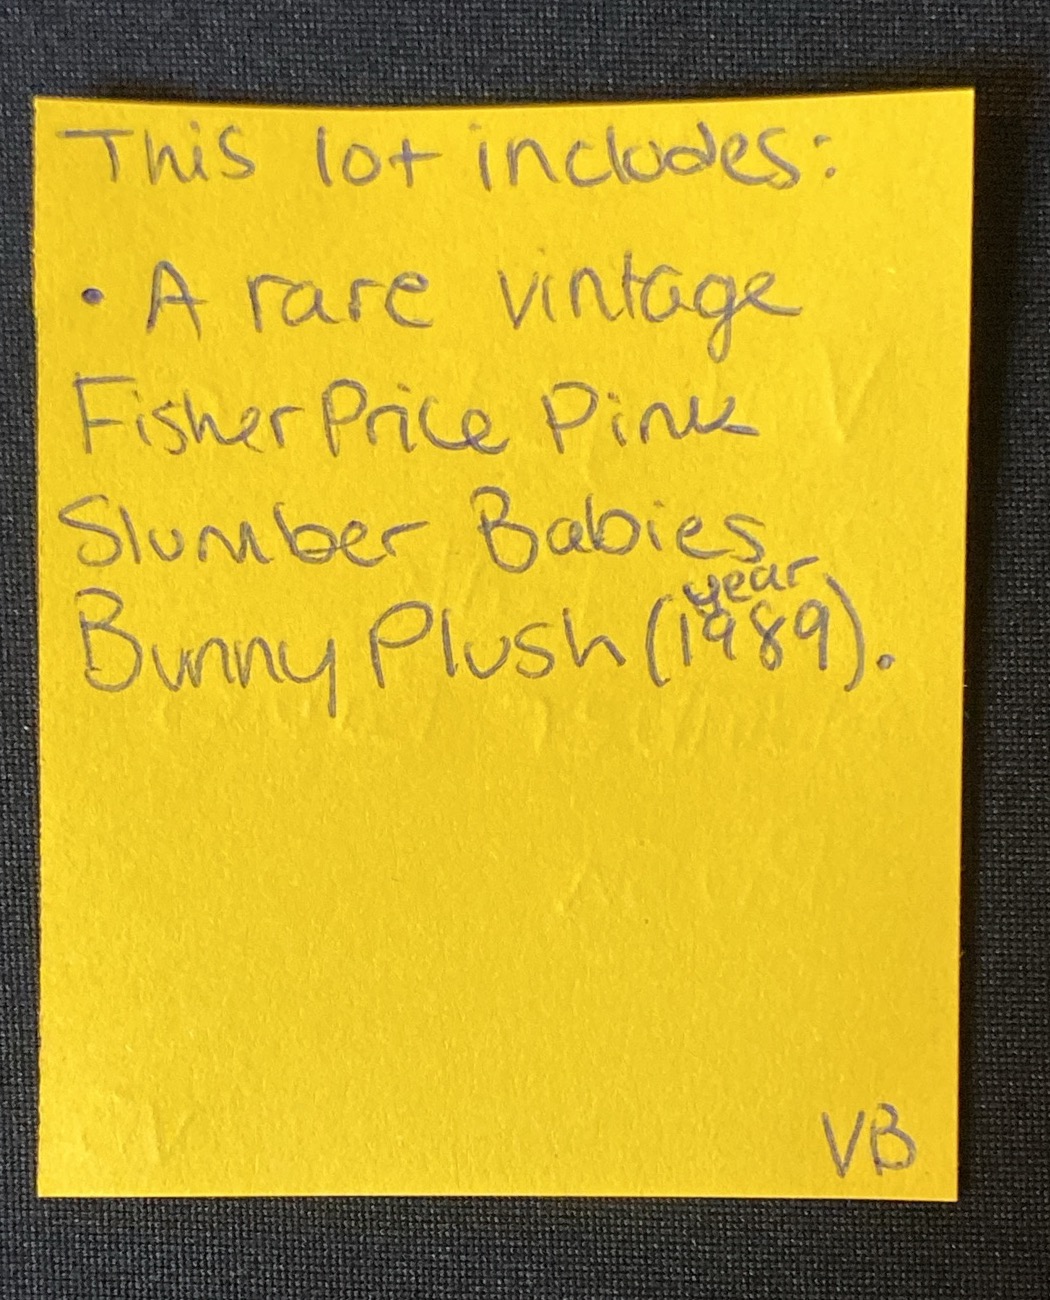 This lot includes:
• A rare vintage
Fisher Price Pink
Slumber Babies
year
Bunny Plush (1989).
VB